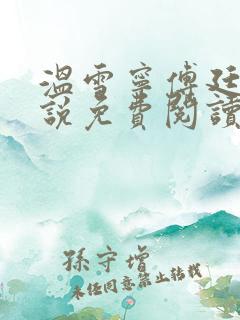 溫雪寧傅廷
說免費閱讀
孫守增
未经同意禁止转载